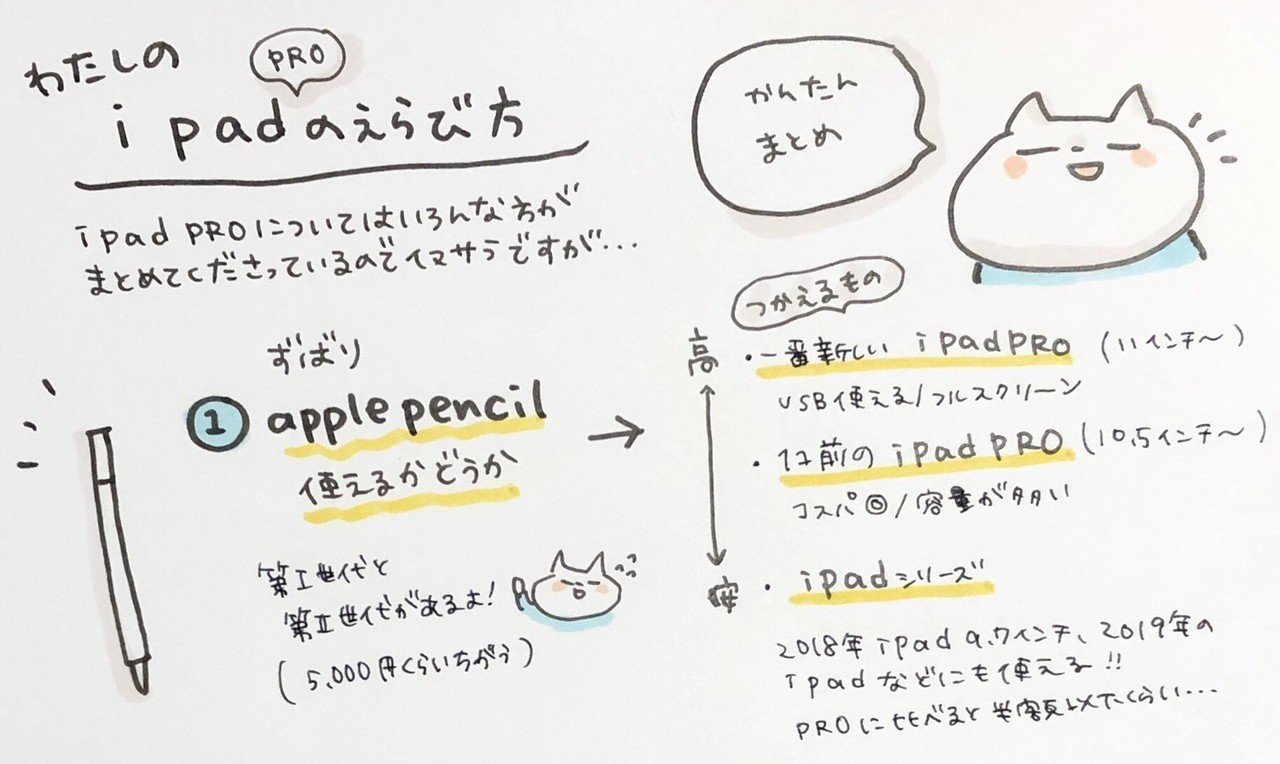 わたしの
PRO
ipadのえらび方
ipad PROについてはいろんな方が
まとめてくださっているのでイマサラですが...
かんたん
まとめ
ずばり
① apple pencil
使えるかどうか
→
第Ⅰ世代と
第Ⅱ世代があるよ!
(5,000円くらいちがう)
つかえるもの
高
・一番新しい ipad PRO (11インチ〜)
USB使える/フルスクリーン
・1つ前の ipad PRO (10.5インチ〜)
コスパ◎/容量が多い
安
・ipadシリーズ
2018年 ipad 9.7インチ、2019年の
ipadなどにも使える!!
PROに比べると半額以下くらい...